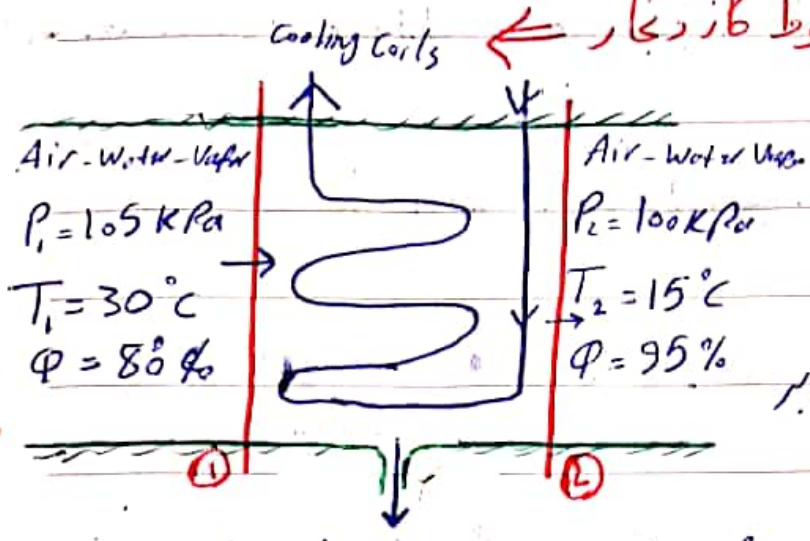 Cooling Coils ←
Air-Water-Vapor
P₁ = 105 kPa
T₁ = 30°C
φ = 80%
Air-Water Vapor
P₂ = 100 kPa
T₂ = 15°C
φ = 95%
① ②